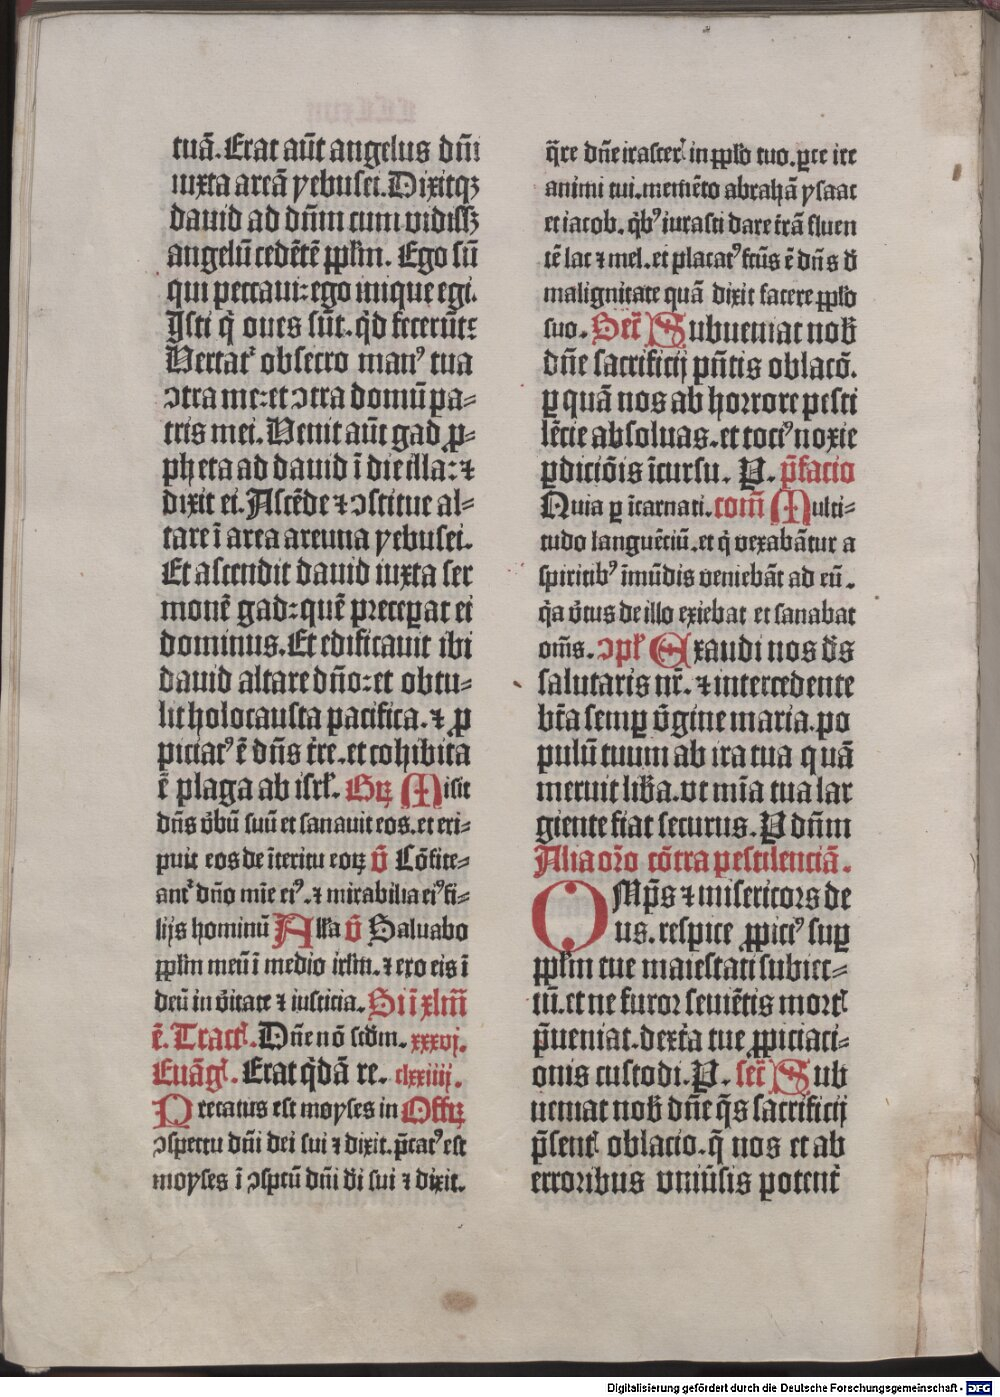 tuā. Erat aūt angelus dn̄i
iuxta areā yebusei. Dixitqꝫ
dauid ad dn̄m cum vidissꝫ
angelū cedētē ꝓpl̄m. Ego sū
qui peccaui: ego inique egi.
Isti q̄ oues sūt. qd̄ fecerūt:
Vertat᷑ obsecro manꝰ tua
ↄtra me: et ↄtra domū pa-
tris mei. Venit aūt gad ꝓ-
pheta ad dauid ī die illa: ⁊
dixit ei. Ascēde ⁊ ↄstitue al-
tare ī area areuna yebusei.
Et ascendit dauid iuxta ser
monē gad: quē preceꝑat ei
dominus. Et edificauit ibi
dauid altare dn̄o: et obtu-
lit holocausta pacifica. ⁊ ꝓ
piciatꝰ ē dn̄s t̄re. et cohibita
ē plaga ab isrl̄. Grꝝ Misit
dn̄s v̄bū suū et sanauit eos. et eri-
puit eos de īteritu eoꝝ v̄ Cōfite-
ant᷑ dn̄o mīe eiꝰ. ⁊ mirabilia eiꝰ fi-
lijs hominū Allā v̄ Saluabo
ꝓpl̄m meū ī medio irl̄m. ⁊ ero eis ī
deū in v̄itate ⁊ iusticia. Si ī xl̄m̄
ē. Tractꝰ. Dn̄e nō scd̄m. xxxvj.
Euāgl̄. Erat q̄dā re. clxiiij.
Precatus est moyses in Offrꝝ
ↄspectu dn̄i dei sui ⁊ dixit. p̄catꝰ est
moyses ī ↄspc̄tū dn̄i d̄i sui ⁊ dixit.
q̄re dn̄e irascer᷑ in ꝓpl̄o tuo. ꝑce ire
animi tui. memēto abrahā ysaac
et iacob. qb̄ꝰ iurasti dare t̄rā fluen
tē lac ⁊ mel. et placatꝰ fc̄us ē dn̄s d̄
malignitate quā dixit facere ꝓpl̄o
suo. Secr̄ Subueniat nob̄
dn̄e sacrificij pn̄tis oblacō.
ꝑ quā nos ab horrore pesti
lēcie absoluas. et tociꝰ noxie
ꝑdiciōis īcursu. P. p̄facio
Quia ꝑ īcarnati. com̄ Multi-
tudo languēciū. et q̄ vexabātur a
spiritibꝰ īmūdis veniebāt ad eū.
q̄a v̄tus de illo exiebat et sanabat
om̄s. ↄpl̄ Exaudi nos d̄s
salutaris nr̄. ⁊ intercedente
bt̄a semꝑ v̄gine maria. po
pulū tuum ab ira tua quā
meruit lib̄a. vt mīa tua lar
giente fiat securus. P dn̄m
Alia or̄o cōtra pestilenciā.
OMp̄s ⁊ misericors de
us. respice ꝓpiciꝰ suꝑ
ꝓpl̄m tue maiestati subiec-
tū. et ne furor seuiētis mortꝭ
p̄ueniat. dext̄a tue ꝓpiciaci-
onis custodi. P. secr̄ Sub
ueniat nob̄ dn̄e q̄s sacrificij
p̄sentꝭ oblacio. q̄ nos et ab
erroribus vniūsis potent᷑
Digitalisierung gefördert durch die Deutsche Forschungsgemeinschaft - DFG